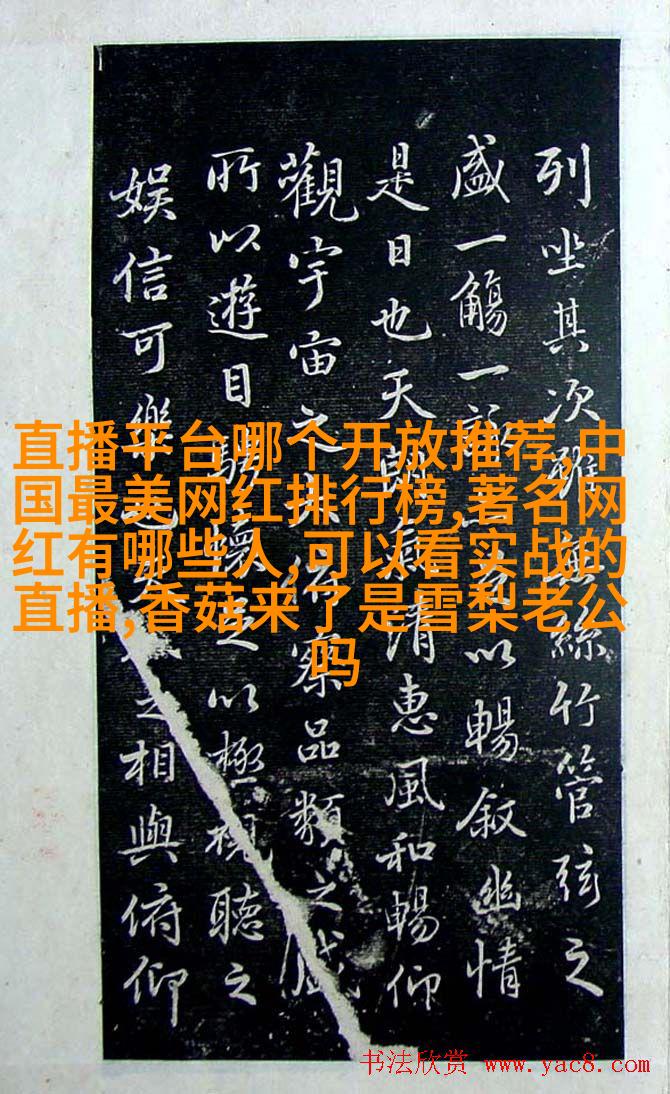 列坐其次雖無絲竹管弦之
盛一觴一以暢叙幽情
是日也天朗清惠風和暢仰
觀宇宙之察品類之盛
所以遊目騁懷足以極視聽之
娛信可樂之相與俯仰
直播平台哪个开放推荐,中
国最美网红排行榜,著名网
红有哪些人,可以看实战的
直播,香菇来了是雪梨老公
吗
书法欣赏 www.yac8.com